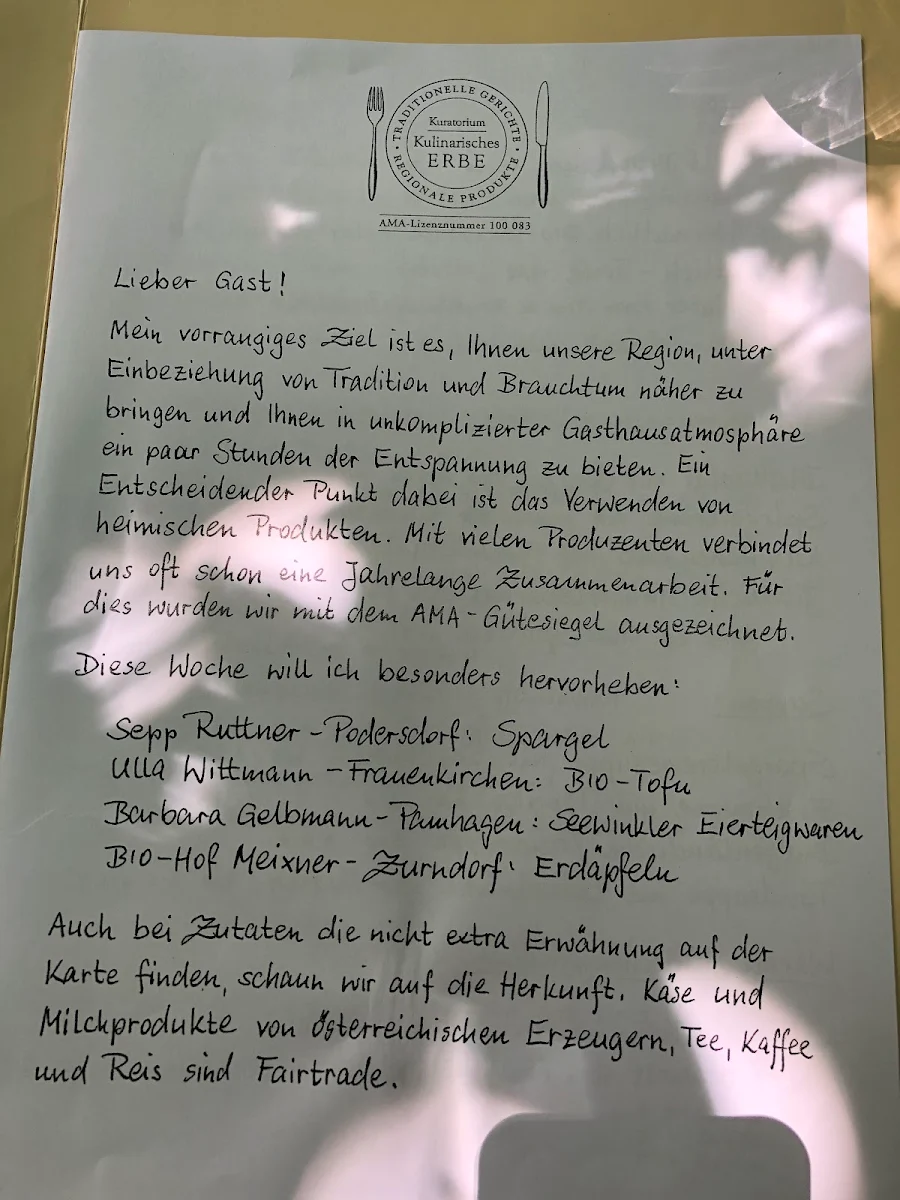 TRADITIONELLE GERICHTE
Kuratorium
Kulinarisches
ERBE
REGIONALE PRODUKTE
AMA-Lizenznummer 100 083
Lieber Gast!
Mein vorrangiges Ziel ist es, Ihnen unsere Region, unter
Einbeziehung von Tradition und Brauchtum näher zu
bringen und Ihnen in unkomplizierter Gasthausatmosphäre
ein paar Stunden der Entspannung zu bieten. Ein
Entscheidender Punkt dabei ist das Verwenden von
heimischen Produkten. Mit vielen Produzenten verbindet
uns oft schon eine Jahrelange Zusammenarbeit. Für
dies wurden wir mit dem AMA-Gütesiegel ausgezeichnet.
Diese Woche will ich besonders hervorheben:
Sepp Ruttner - Podersdorf: Spargel
Ulla Wittmann - Frauenkirchen: BIO-Tofu
Barbara Gelbmann - Pamhagen: Seewinkler Eierteigwaren
BIO-Hof Meixner - Zurndorf: Erdäpfeln
Auch bei Zutaten die nicht extra Erwähnung auf der
Karte finden, schaun wir auf die Herkunft. Käse und
Milchprodukte von österreichischen Erzeugern, Tee, Kaffee
und Reis sind Fairtrade.